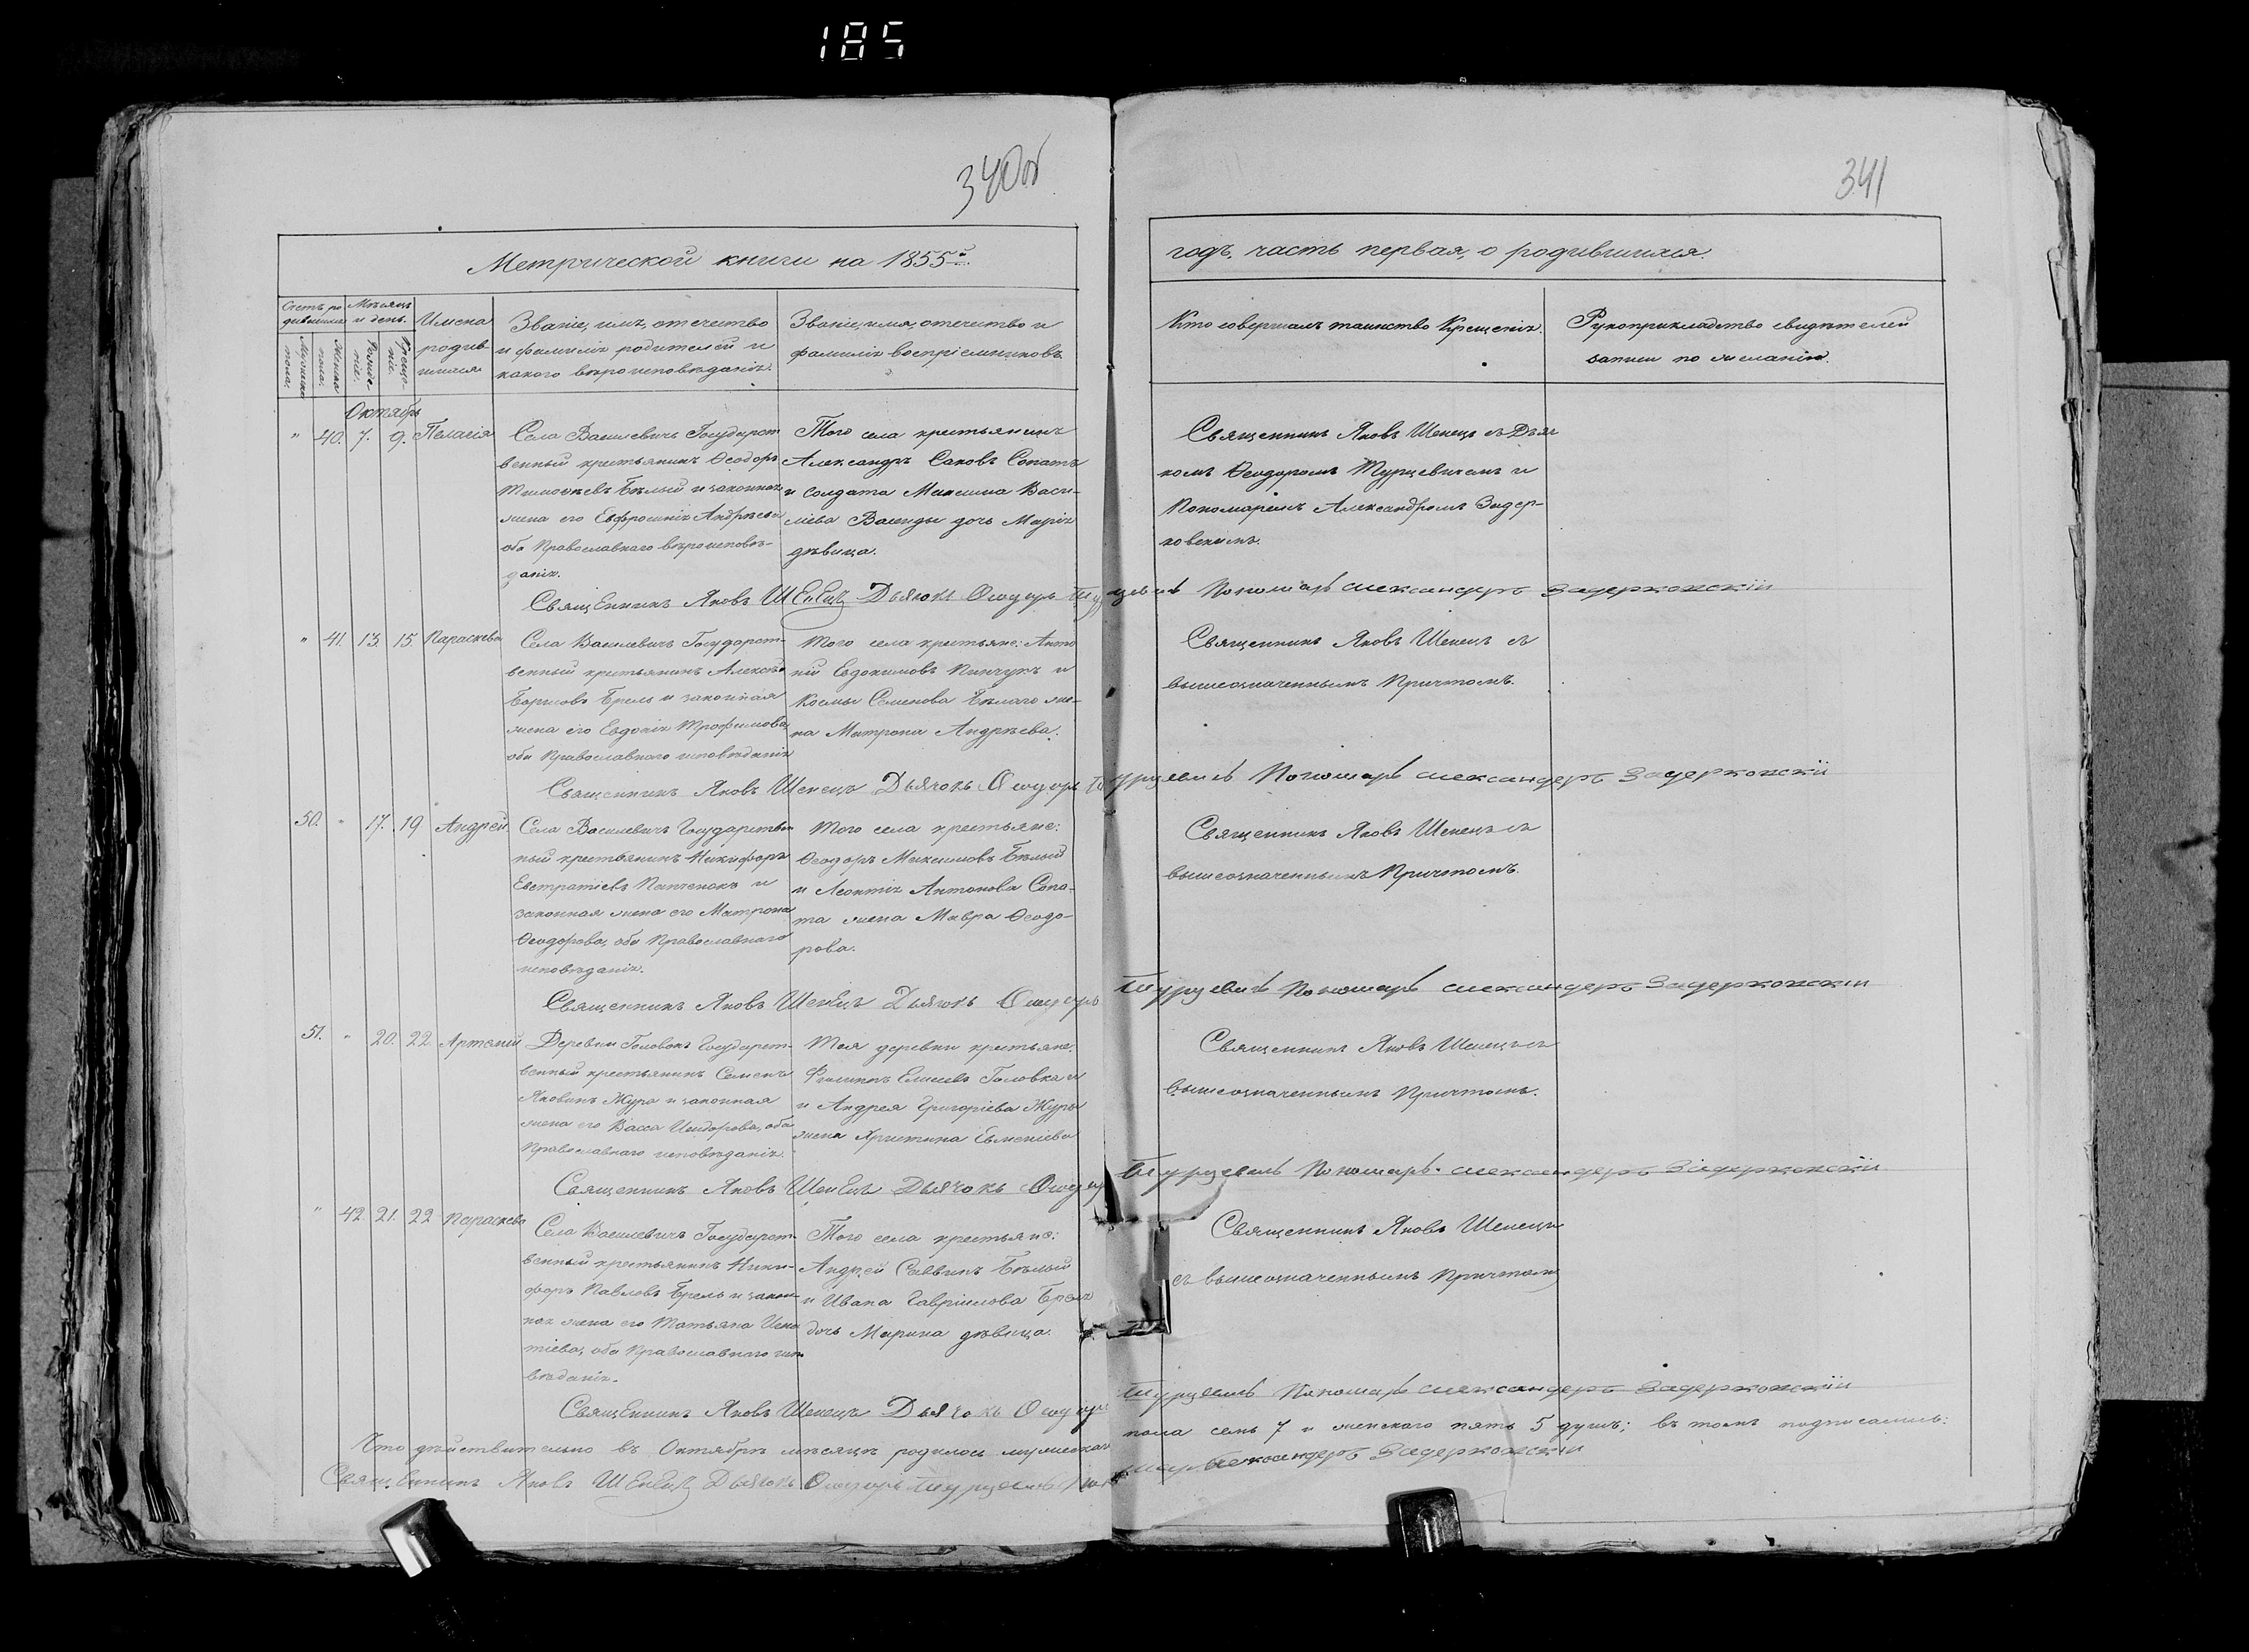 185
340об
341
Метрической книги на 1855й
годъ, часть первая, о родившихся.
Счетъ родившихся
Мѣсяцъ и день.
Имена родившихся
Званіе, имя, отечество и фамилія родителей и какого вѣроисповѣданія.
Званіе, имя, отечество и фамилія воспріемниковъ
Кто совершалъ таинство Крещенія.
Рукоприкладство свидѣтелей записи по желанію.
Мужеска пола.
Женска пола.
Рожденіе.
Крещеніе.
Октябрь
" 40. 7. 9. Пелагія
Села Василевичъ Государст-
венный крестьянинъ Ѳеодоръ
Тимоѳеевъ Бѣлый и законная
жена его Евфросинія Андреева
оба Православнаго вѣроисповѣ-
данія.
Того села крестьянинъ
Александръ Саковъ Сопатъ
и солдата Максима Васи-
ліева дочь Марія
дѣвица.
Священникъ Яковъ Шенецъ съ Дьяч
комъ Ѳеодоромъ Турцевичемъ и
Пономаремъ Александромъ Задер-
ковскимъ.
Священникъ Яковъ Шенецъ Дьячокъ Ѳеодоръ Турцевичъ Пономарь Александеръ Задерковскій
" 41. 13. 15. Параскева
Села Василевичъ Государст-
венный крестьянинъ Алексѣй
Борисовъ Брель и законная
жена его Евдокія Трофимова,
оба Православнаго исповѣданія
Того села крестьяне: Анто
ній Евдокимовъ Пинчукъ и
Космы Семенова Бѣлаго же-
на Матрона Андреева.
Священникъ Яковъ Шенецъ съ
вышеозначеннымъ Причтомъ.
Священникъ Яковъ Шенецъ Дьячокъ Ѳеодоръ Турцевичъ Пономарь Александеръ Задерковскій
50. " 17. 19 Андрей
Села Василевичъ Государствен
ный крестьянинъ Никифоръ
Евстратіевъ и
законная жена его Матрона
Ѳеодорова, оба Православнаго
исповѣданія.
Того села крестьяне:
Ѳеодоръ Максимовъ Бѣлый
и Леонтія Антонова Сопа-
та жена Мавра Ѳеодо-
рова.
Священникъ Яковъ Шенецъ съ
вышеозначеннымъ Причтомъ.
Священникъ Яковъ Шенецъ Дьячокъ Ѳеодоръ Турцевичъ Пономарь Александеръ Задерковскій
51. " 20. 22 Артемій
Деревни Головокъ Государст-
венный крестьянинъ Семенъ
Яковинъ Жура и законная
жена его Васса Исидорова, оба
Православнаго исповѣданія.
Тоя деревни крестьяне:
Филиппъ Елисеевъ Головка и
и Андрея Григоріева Журы
жена Христина Евменіева
Священникъ Яковъ Шенецъ съ
вышеозначеннымъ Причтомъ.
Священникъ Яковъ Шенецъ Дьячокъ Ѳеодоръ Турцевичъ Пономарь Александеръ Задерковскій
" 42. 21. 22 Параскева
Села Василевичъ Государст-
венный крестьянинъ Ники-
форъ Павловъ Брель и закон-
ная жена его Татьяна Игна
тіева, оба Православнаго испо
вѣданія.
Того села крестьяне:
Андрей Саввинъ Бѣлый
и Ивана Гавріилова Бреля
дочь Марина дѣвица.
Священникъ Яковъ Шенецъ
съ вышеозначеннымъ Причтомъ
Священникъ Яковъ Шенецъ Дьячокъ Ѳеодоръ Турцевичъ Пономарь Александеръ Задерковскій
Что дѣйствительно въ Октябрѣ мѣсяцѣ родилось мужескаго пола семь 7 и женскаго пять 5 душъ; въ томъ подписались:
Священникъ Яковъ Шенецъ Дьячокъ Ѳеодоръ Турцевичъ Пономарь Александеръ Задерковскій